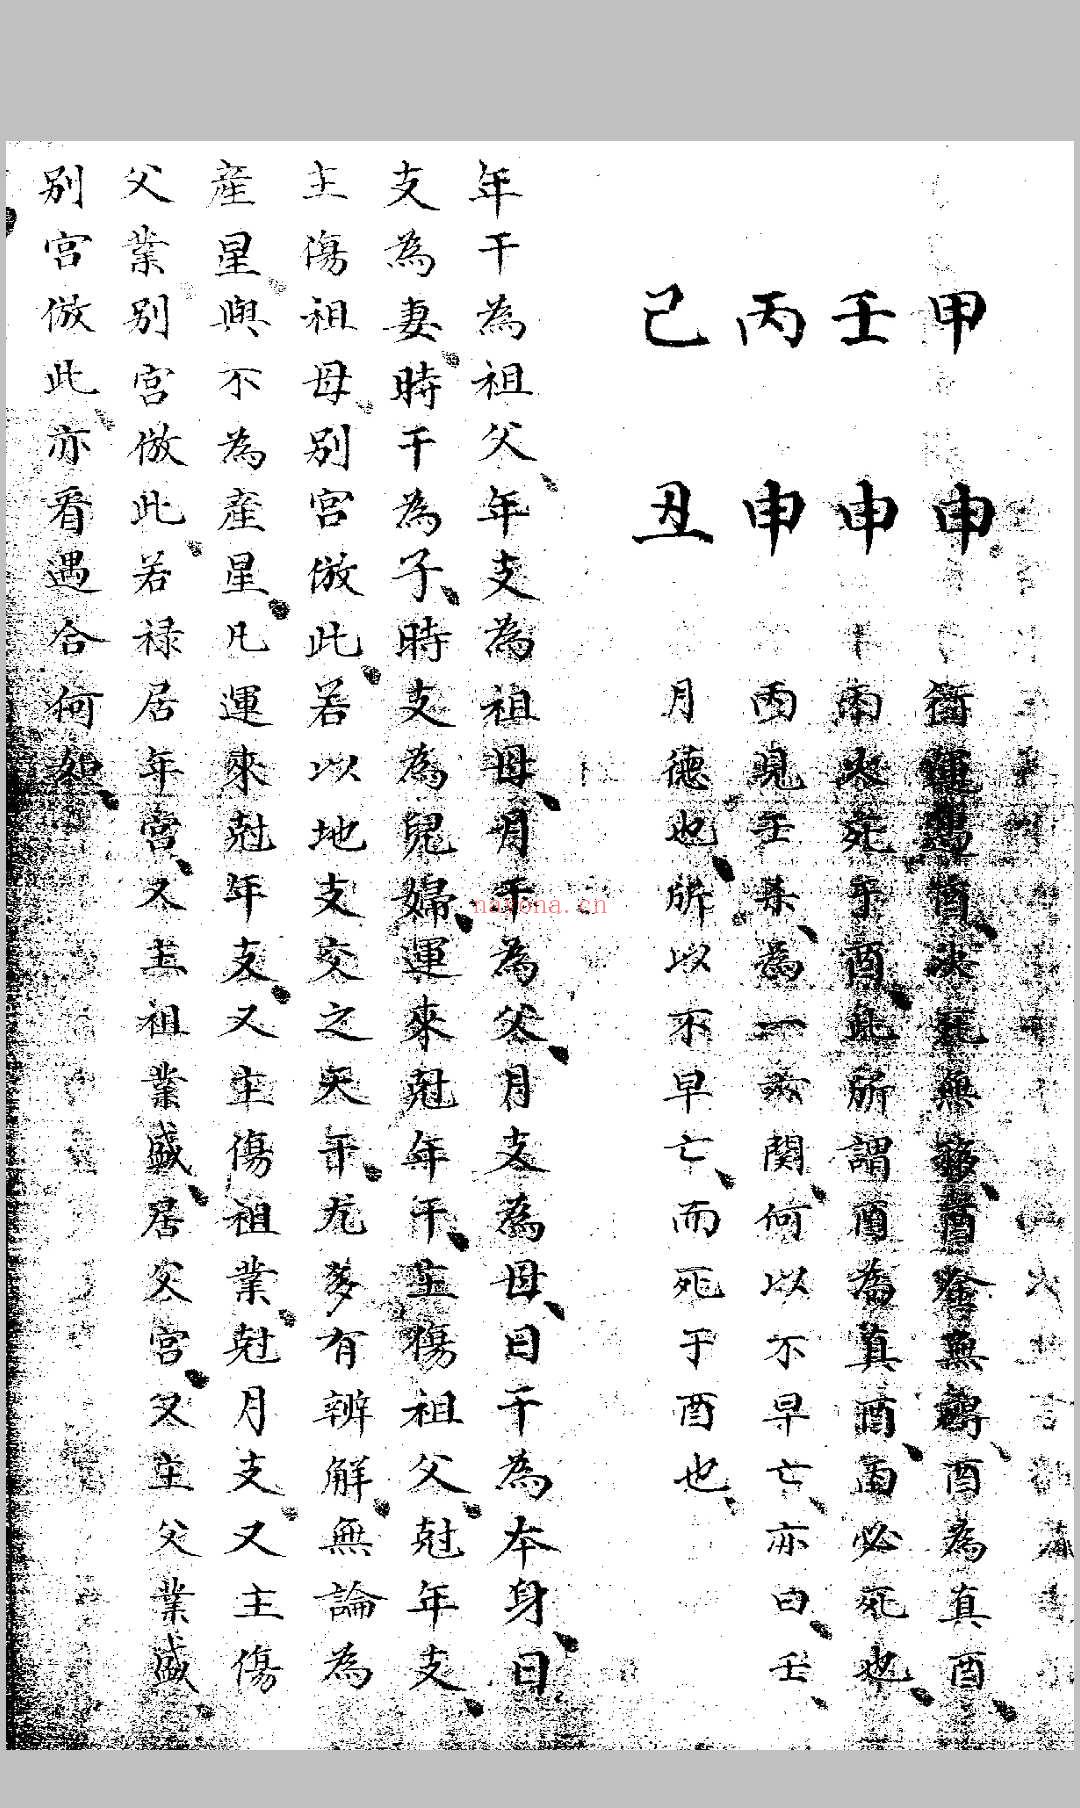 甲 申 衝運遇酉決死無疑酉奪無鷄酉為真酉
壬 申 雨水死于酉此所謂酉為真酉酉必死也
丙 申 丙現壬杀為一 関何以不早亡亦曰壬
己 丑 月德也所以不早亡而死于酉也
年干為祖父年支為祖母月干為父月支為母日干為本身日
支為妻時干為子時支為兒婦運來尅年干主傷祖父尅年支
主傷祖母別宮倣此若以地支交之天干尤多有辨解無論為
産星與不為産星凡運來尅年支又主傷祖業尅月支又主傷
父業別宮倣此若禄居年宮又主祖業盛居父宮又主父業盛
別宮倣此亦看遇合何如
navona.cn